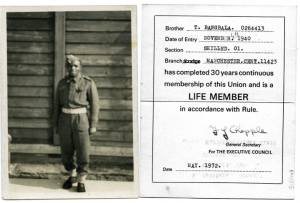 Brother T. BANGBALA. 0264413
Date of Entry NOVEMBER. 1940
Section SKILLED. 01.
Branch MANCHESTER.CENT.11423
has completed 30 years continuous
membership of this Union and is a
LIFE MEMBER
in accordance with Rule.
General Secretary
For THE EXECUTIVE COUNCIL
Date MAY. 1972.